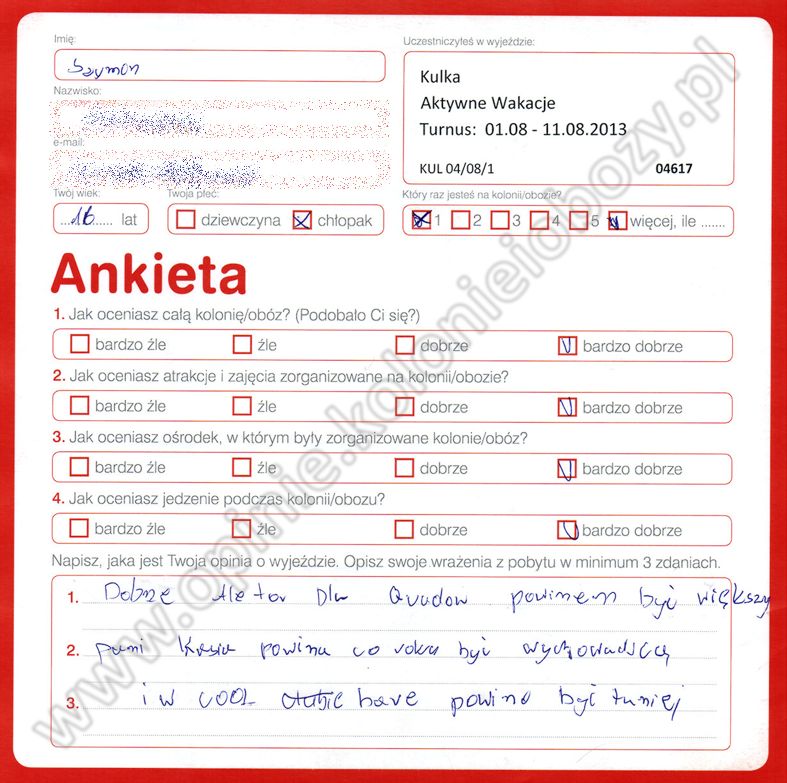 Imię:
Uczestniczyłeś w wyjeździe:
Szymon
Kulka
Nazwisko:
Aktywne Wakacje
Turnus: 01.08 - 11.08.2013
e-mail:
KUL 04/08/1 04617
Twój wiek: Twoja płeć: Który raz jesteś na kolonii/obozie?
16 lat dziewczyna chłopak 1 2 3 4 5 więcej, ile .......
Ankieta
1. Jak oceniasz całą kolonię/obóz? (Podobało Ci się?)
bardzo źle źle dobrze bardzo dobrze
2. Jak oceniasz atrakcje i zajęcia zorganizowane na kolonii/obozie?
bardzo źle źle dobrze bardzo dobrze
3. Jak oceniasz ośrodek, w którym były zorganizowane kolonie/obóz?
bardzo źle źle dobrze bardzo dobrze
4. Jak oceniasz jedzenie podczas kolonii/obozu?
bardzo źle źle dobrze bardzo dobrze
Napisz, jaka jest Twoja opinia o wyjeździe. Opisz swoje wrażenia z pobytu w minimum 3 zdaniach.
1. Dobrze ale tor Dla Quadow powinem być większy
2. pani Kasia powina co roku być wychowadscą
3. i w COOL bare powino być taniej
www.opinie.kolonieiobozy.pl